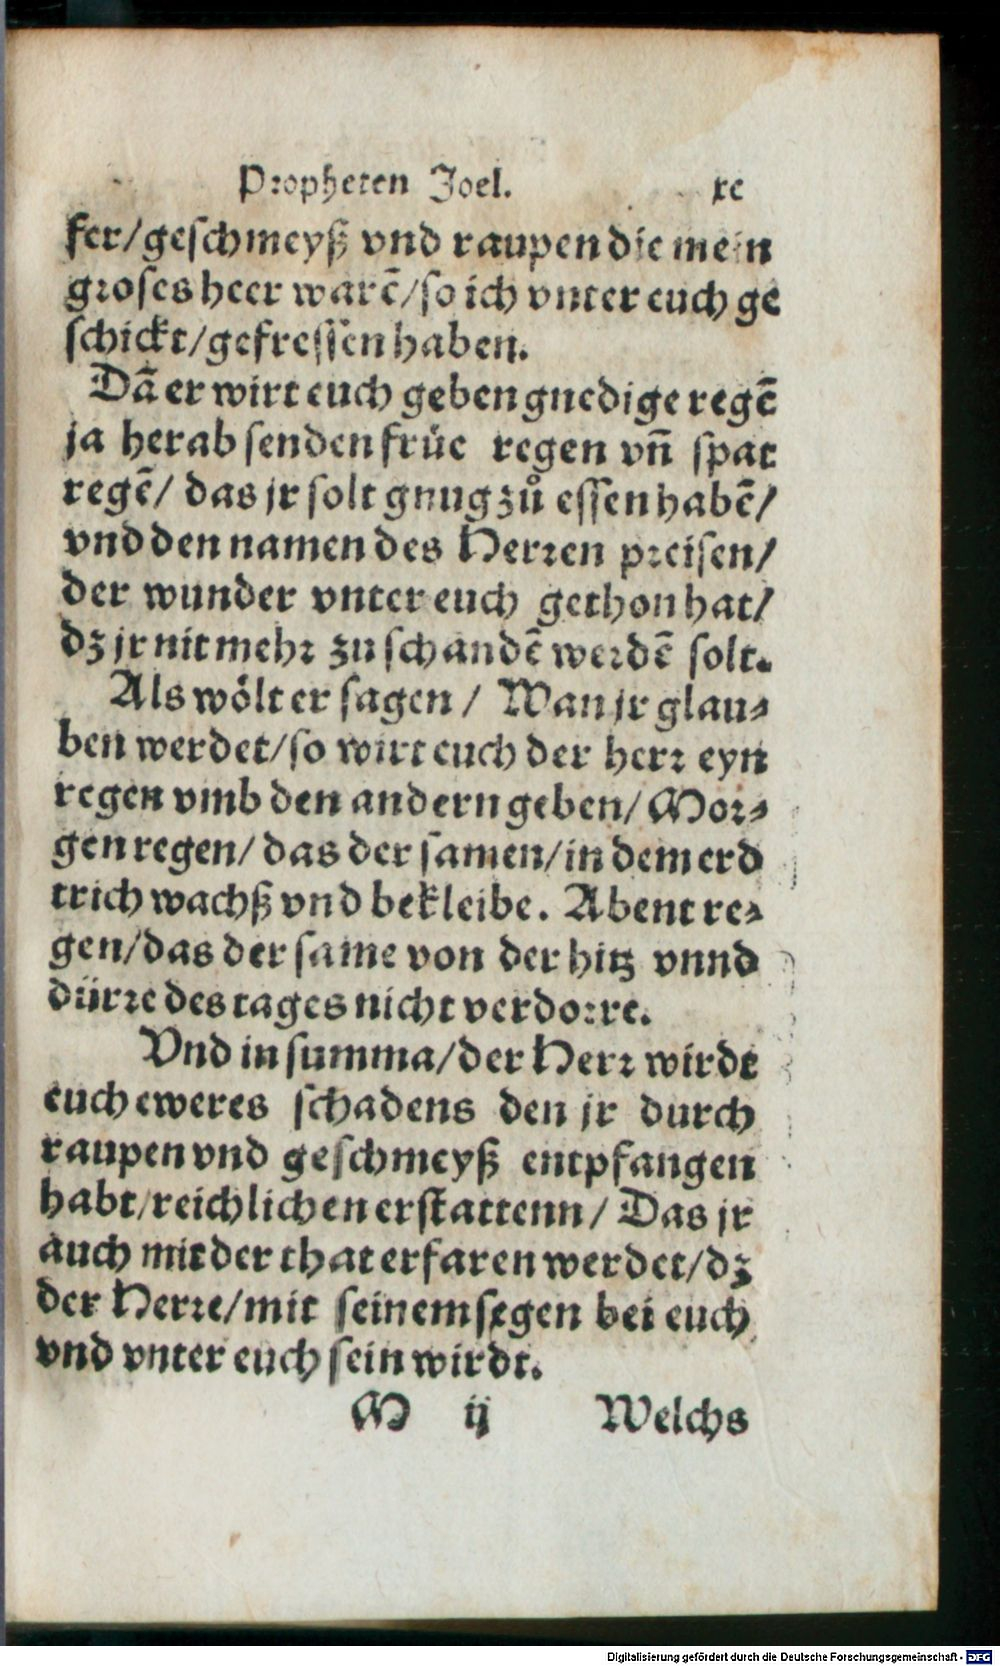 Propheten Joel. xc
fer/geschmeyß vnd raupen die mein
groses heer warē/so ich vnter euch ge
schickt/gefressen haben.
Dā er wirt euch geben gnedige regē
ja herab senden früe regen vn̄ spat
regē/ das jr solt gnug zů essen habē/
vnd den namen des Herren preisen/
der wunder vnter euch gethon hat/
dz jr nit mehr zu schandē werdē solt.
Als wölt er sagen / Wan jr glau⸗
ben werdet/so wirt euch der herr eyn
regen vmb den andern geben/ Mor⸗
gen regen/ das der samen/in dem erd
trich wachß vnd bekleibe. Abent re⸗
gen/das der same von der hitz vnnd
dürre des tages nicht verdorre.
Vnd in summa/der Herr wirdt
euch eweres schadens den jr durch
raupen vnd geschmeyß entpfangen
habt/reichlichen erstattenn/ Das jr
auch mit der that erfaren werdet/dz
der Herre/mit seinem segen bei euch
vnd vnter euch sein wirdt.
M ij Welchs
Digitalisierung gefördert durch die Deutsche Forschungsgemeinschaft - DFG